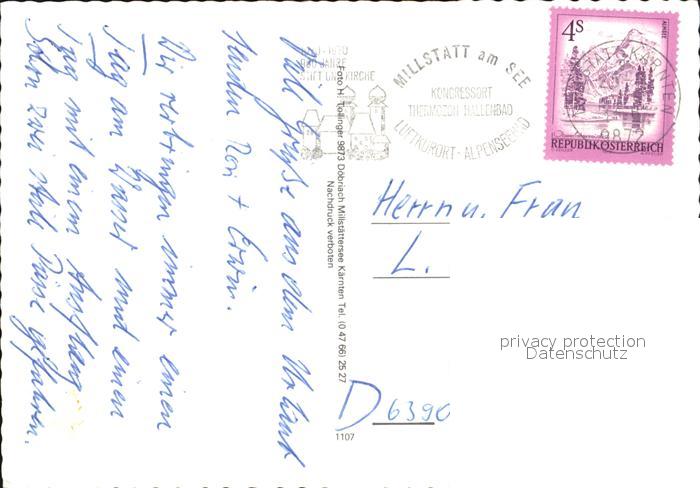 Viele Grüße aus dem Urlaub
senden Rosi + Erwin.
Wir verbringen immer einen
Tag am Wasser und einen
Tag mit einem Ausflug.
Schon zwei mal
gefahren.
Foto H. Tollinger 9873 Döbriach Millstättersee Kärnten Tel. (0 47 66) 25 27
Nachdruck verboten
1107
1070-1970
900 JAHRE
STIFT UND KIRCHE
MILLSTATT am SEE
KONGRESSORT
THERMOZON HALLENBAD
LUFTKURORT - ALPENSEEBAD
4S
ALMSEE
REPUBLIK ÖSTERREICH
KÄRNTEN
9872
Herrn u. Frau
L.
D 6390
privacy protection
Datenschutz